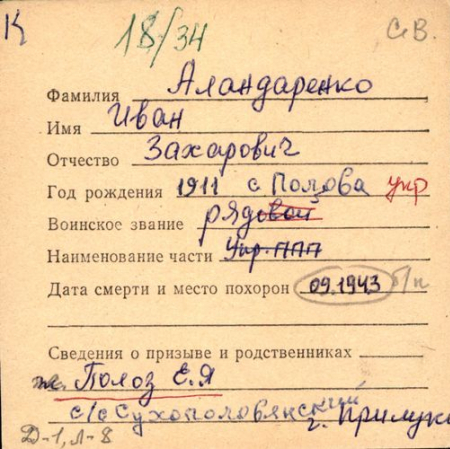 К 18/34 СВ.
Фамилия Аландаренко
Имя Иван
Отчество Захарович
Год рождения 1911 с Полова укр
Воинское звание рядовой
Наименование части Укр. ППП
Дата смерти и место похорон 09.1943 б/п
Сведения о призыве и родственниках
Полоз Е.Я
с/с Сухополовянский г. Прилуки
Д-1, л-8